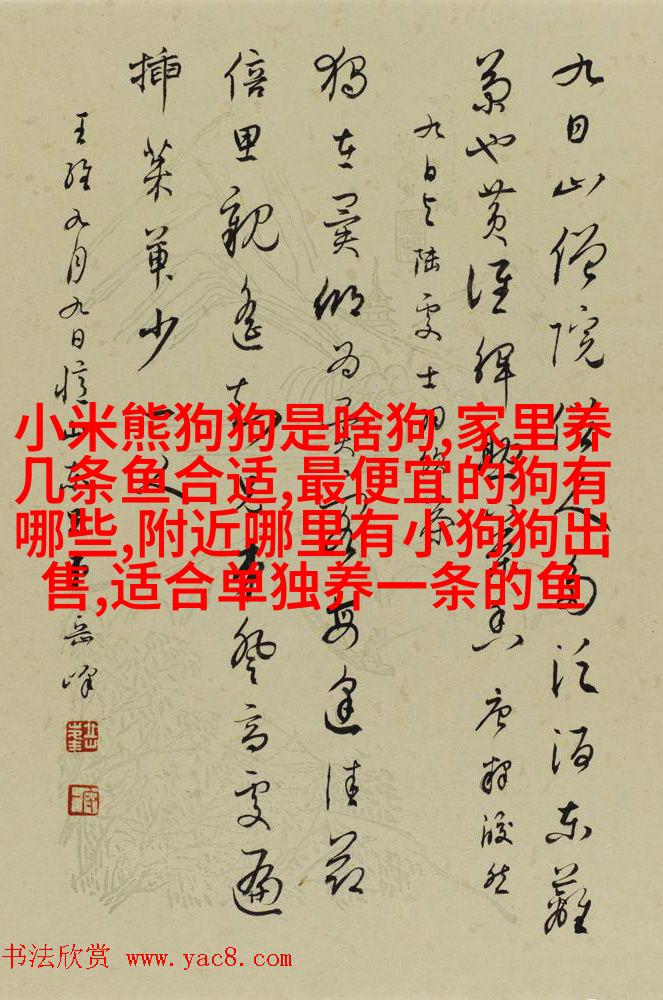 九日山僧院俗人多泛酒东籬
菊也黄谁解助茶香 唐释皎然
九日与陆处士羽饮茶
独在异乡为异客每逢佳节
倍思親遥知兄弟登高处遍
插茱萸少一人
王维九月九日忆山东兄弟 岳峰
小米熊狗狗是啥狗,家里养
几条鱼合适,最便宜的狗有
哪些,附近哪里有小狗狗出
售,适合单独养一条的鱼
书法欣赏 www.yac8.com